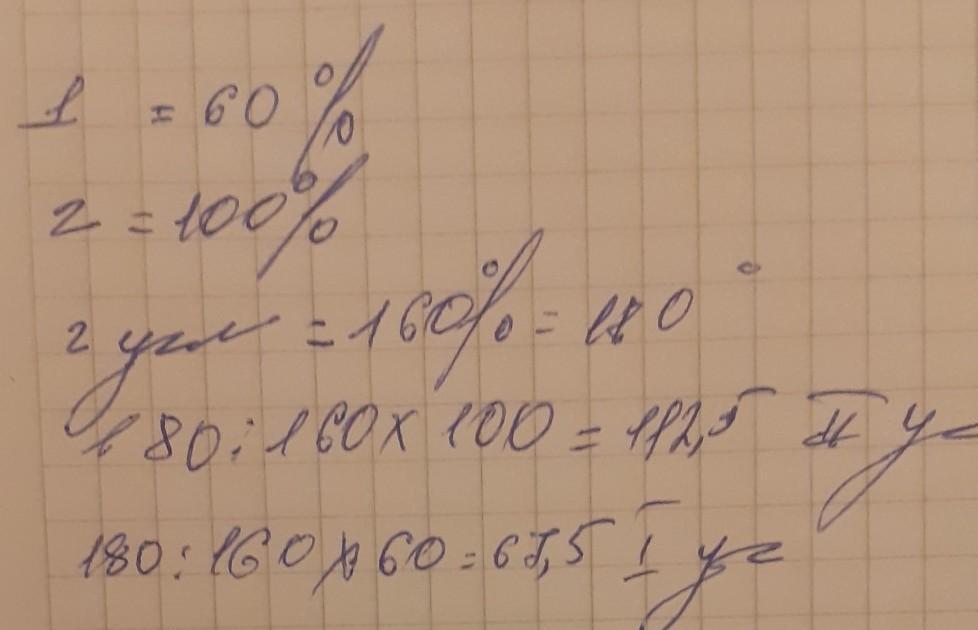 1 = 60%
2 = 100%
2 угла = 160% = 180°
180 : 160 х 100 = 112,5 II уг
180 : 160 х 60 = 67,5 I уг